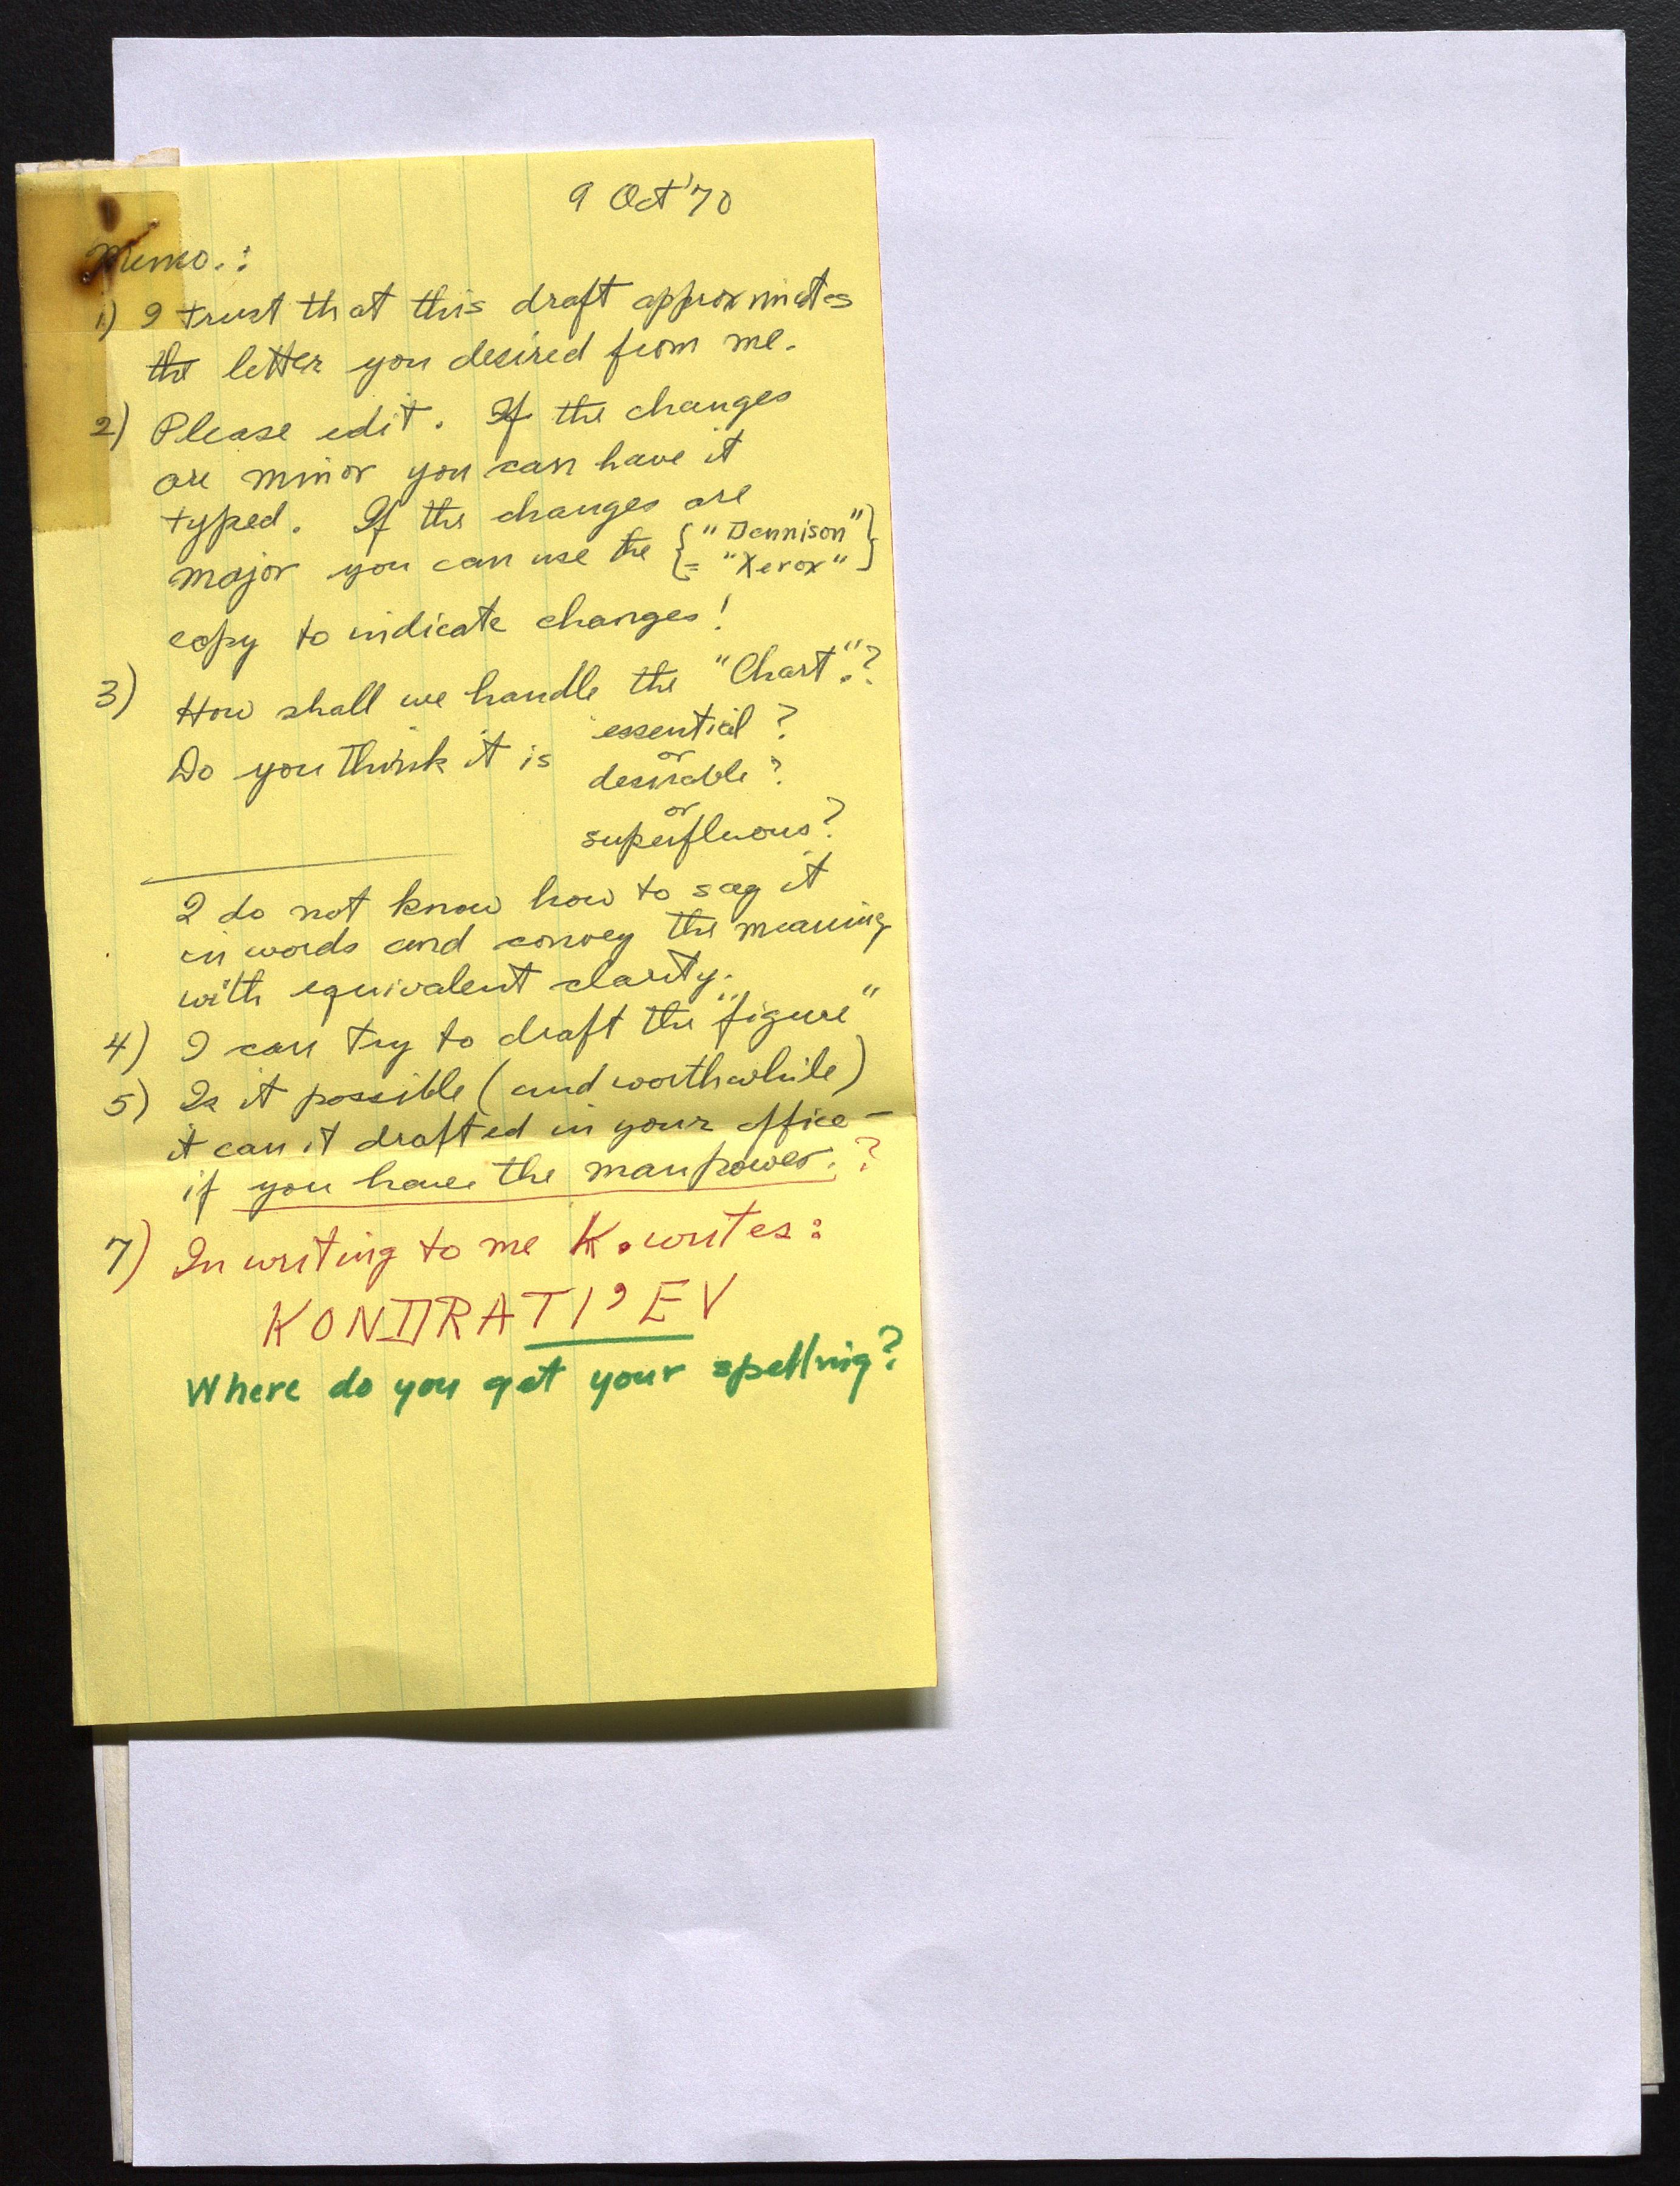 9 Oct '70
Memo.:
1) I trust that this draft approximates
the letter you desired from me.
2) Please edit. If the changes
are minor you can have it
typed. If the changes are
major you can use the { "Dennison" }
{ = "Xerox" }
copy to indicate changes!
3) How shall we handle the "Chart".?
Do you think it is essential ?
or
desirable ?
or
superfluous?
I do not know how to say it
in words and convey the meaning
with equivalent clarity.
4) I can try to draft the "figure"
5) Is it possible (and worthwhile)
it can it drafted in your office –
if you have the manpower. ?
7) In writing to me K. writes:
KONDRATI'EV
Where do you get your spelling?